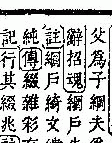 父為子綱夫
辭招魂網戶
註網戶綺文
純傳綴雜彩
記行其綴兆